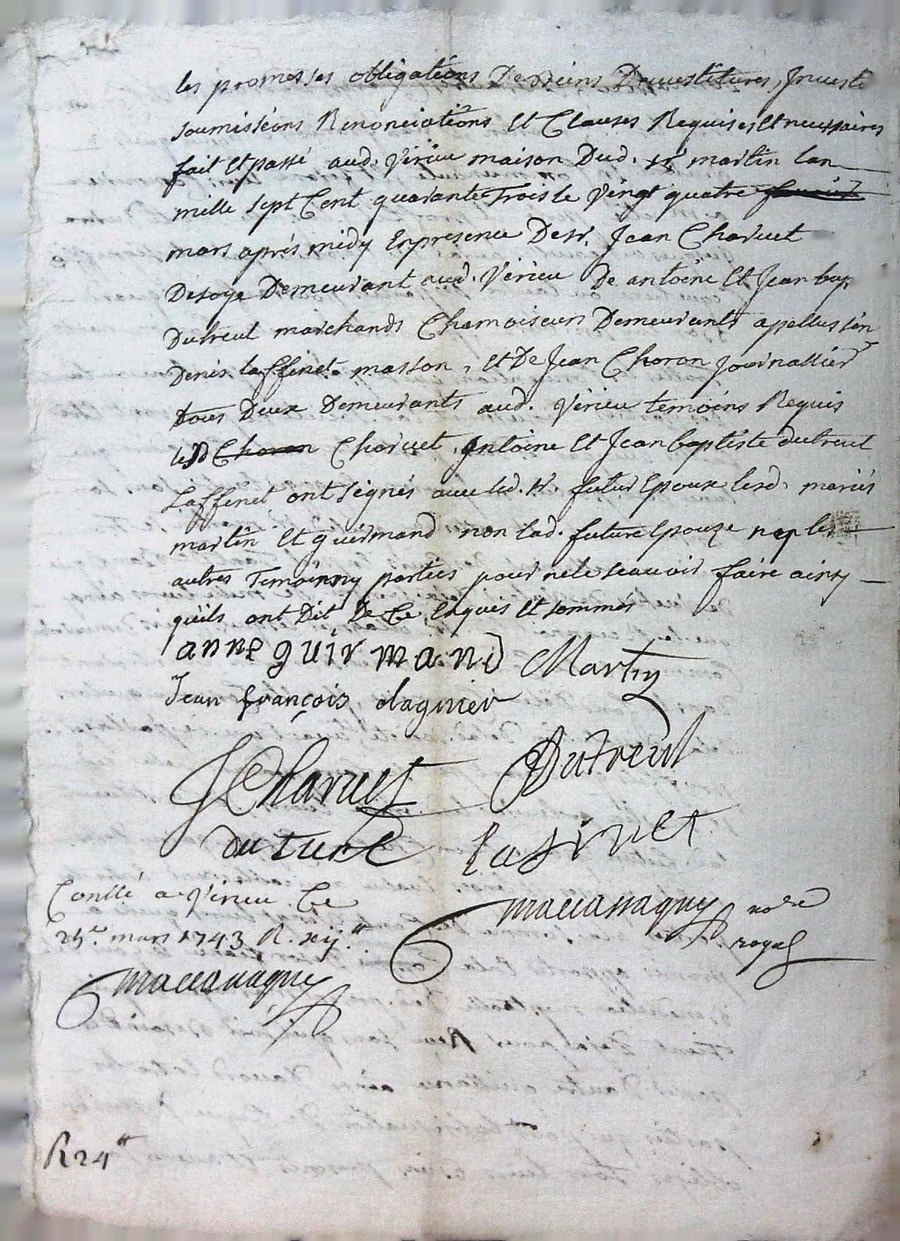 les promesses obligations Dessaisines Devestitures, Investi
soumissions Renonciations Et Clauses Requises et necessaires
fait Et passé aud. Virieu maison Dud. sr. martin lan
mille sept Cent quarante Trois le vingt quatre
mars après midy En presence De sr. Jean Charuet
Demeurant aud. Virieu De antoine Et Jean bap
Dutreul marchands Chamoiseurs Demeurants
Denis laffinet masson, Et De Jean Choron journallier
tous Deux Demeurants aud. Virieu temoins Requis
lesd Choron Charuet, Antoine Et Jean baptiste dutreul
Laffinet ont signés avec led. sr. futur Epoux lesd. mariés
martin Et guirmand non lad. future Epouze ny les
autres Temoins ny parties pour ne le scauoir faire ainsy
quils ont Dit De Ce Enquis Et sommés
anne guirmand Martin
Jean françois dagnier
J Charuet Dutreul
duturel lafinet
maccanaguy nore
royal
Conllé a Virieu Ce
25e. mars 1743 R. xij lt
maccanaguy
R 24 lt